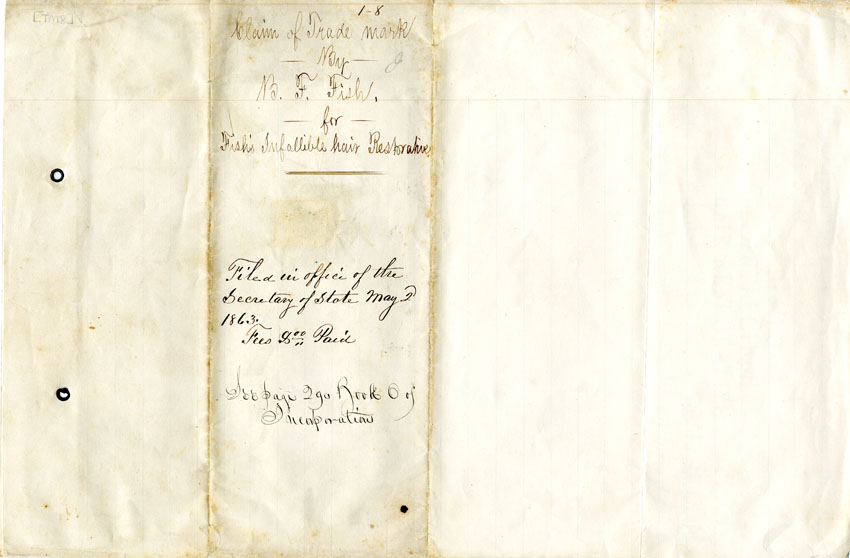 1-8
Claim of Trade mark
By
B. F. Fish,
for
Fish's Infallible hair Restorative
Filed in office of the
Secretary of State May 2
1863.
Fees Paid
See page 290 Book 6 of
Incorporation